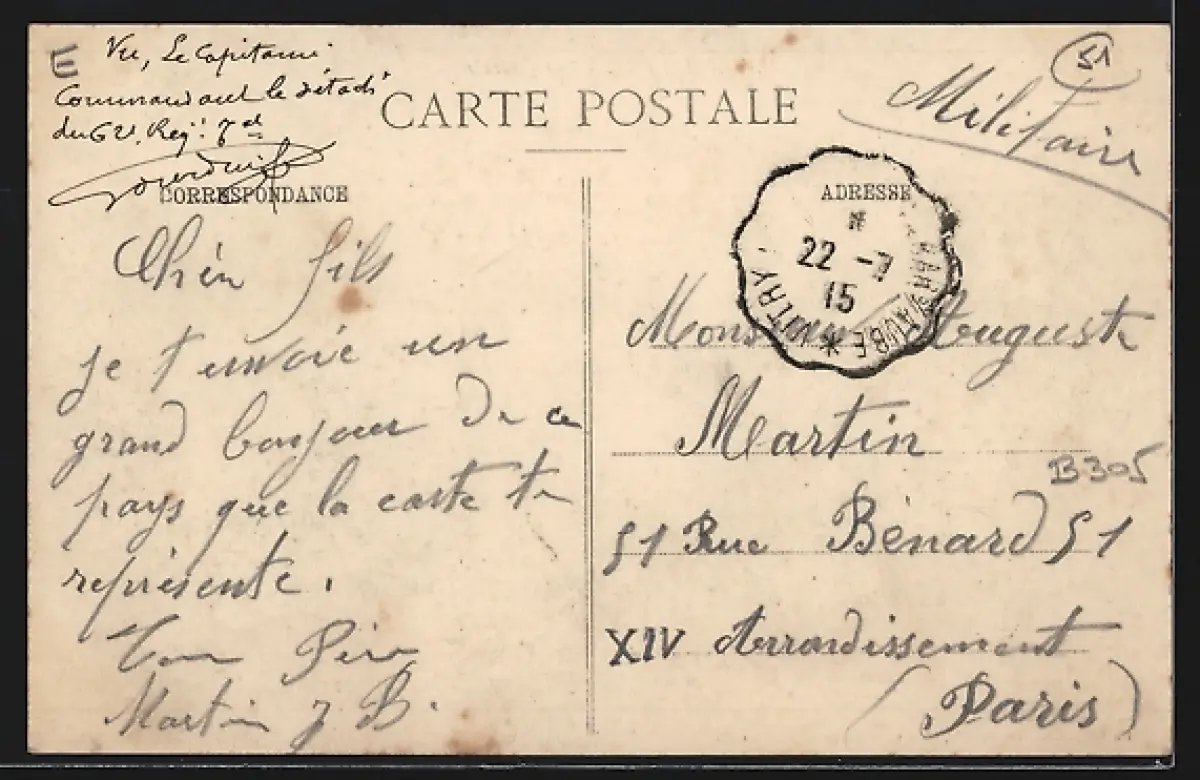 E
Vu, Le Capitaine
Commandant le détach
du 62e Regt Td
CARTE POSTALE
Militaire
51
CORRESPONDANCE
ADRESSE
22 - 7
15
VITRY
BAR S AUBE *
Chèr fils
je t'envoie un
grand bonjour de ce
pays que la carte te
représente.
Ton Père
Martin J B.
Monsieur Auguste
Martin
B305
51 Rue Bénard 51
XIV Arrondissement
(Paris)